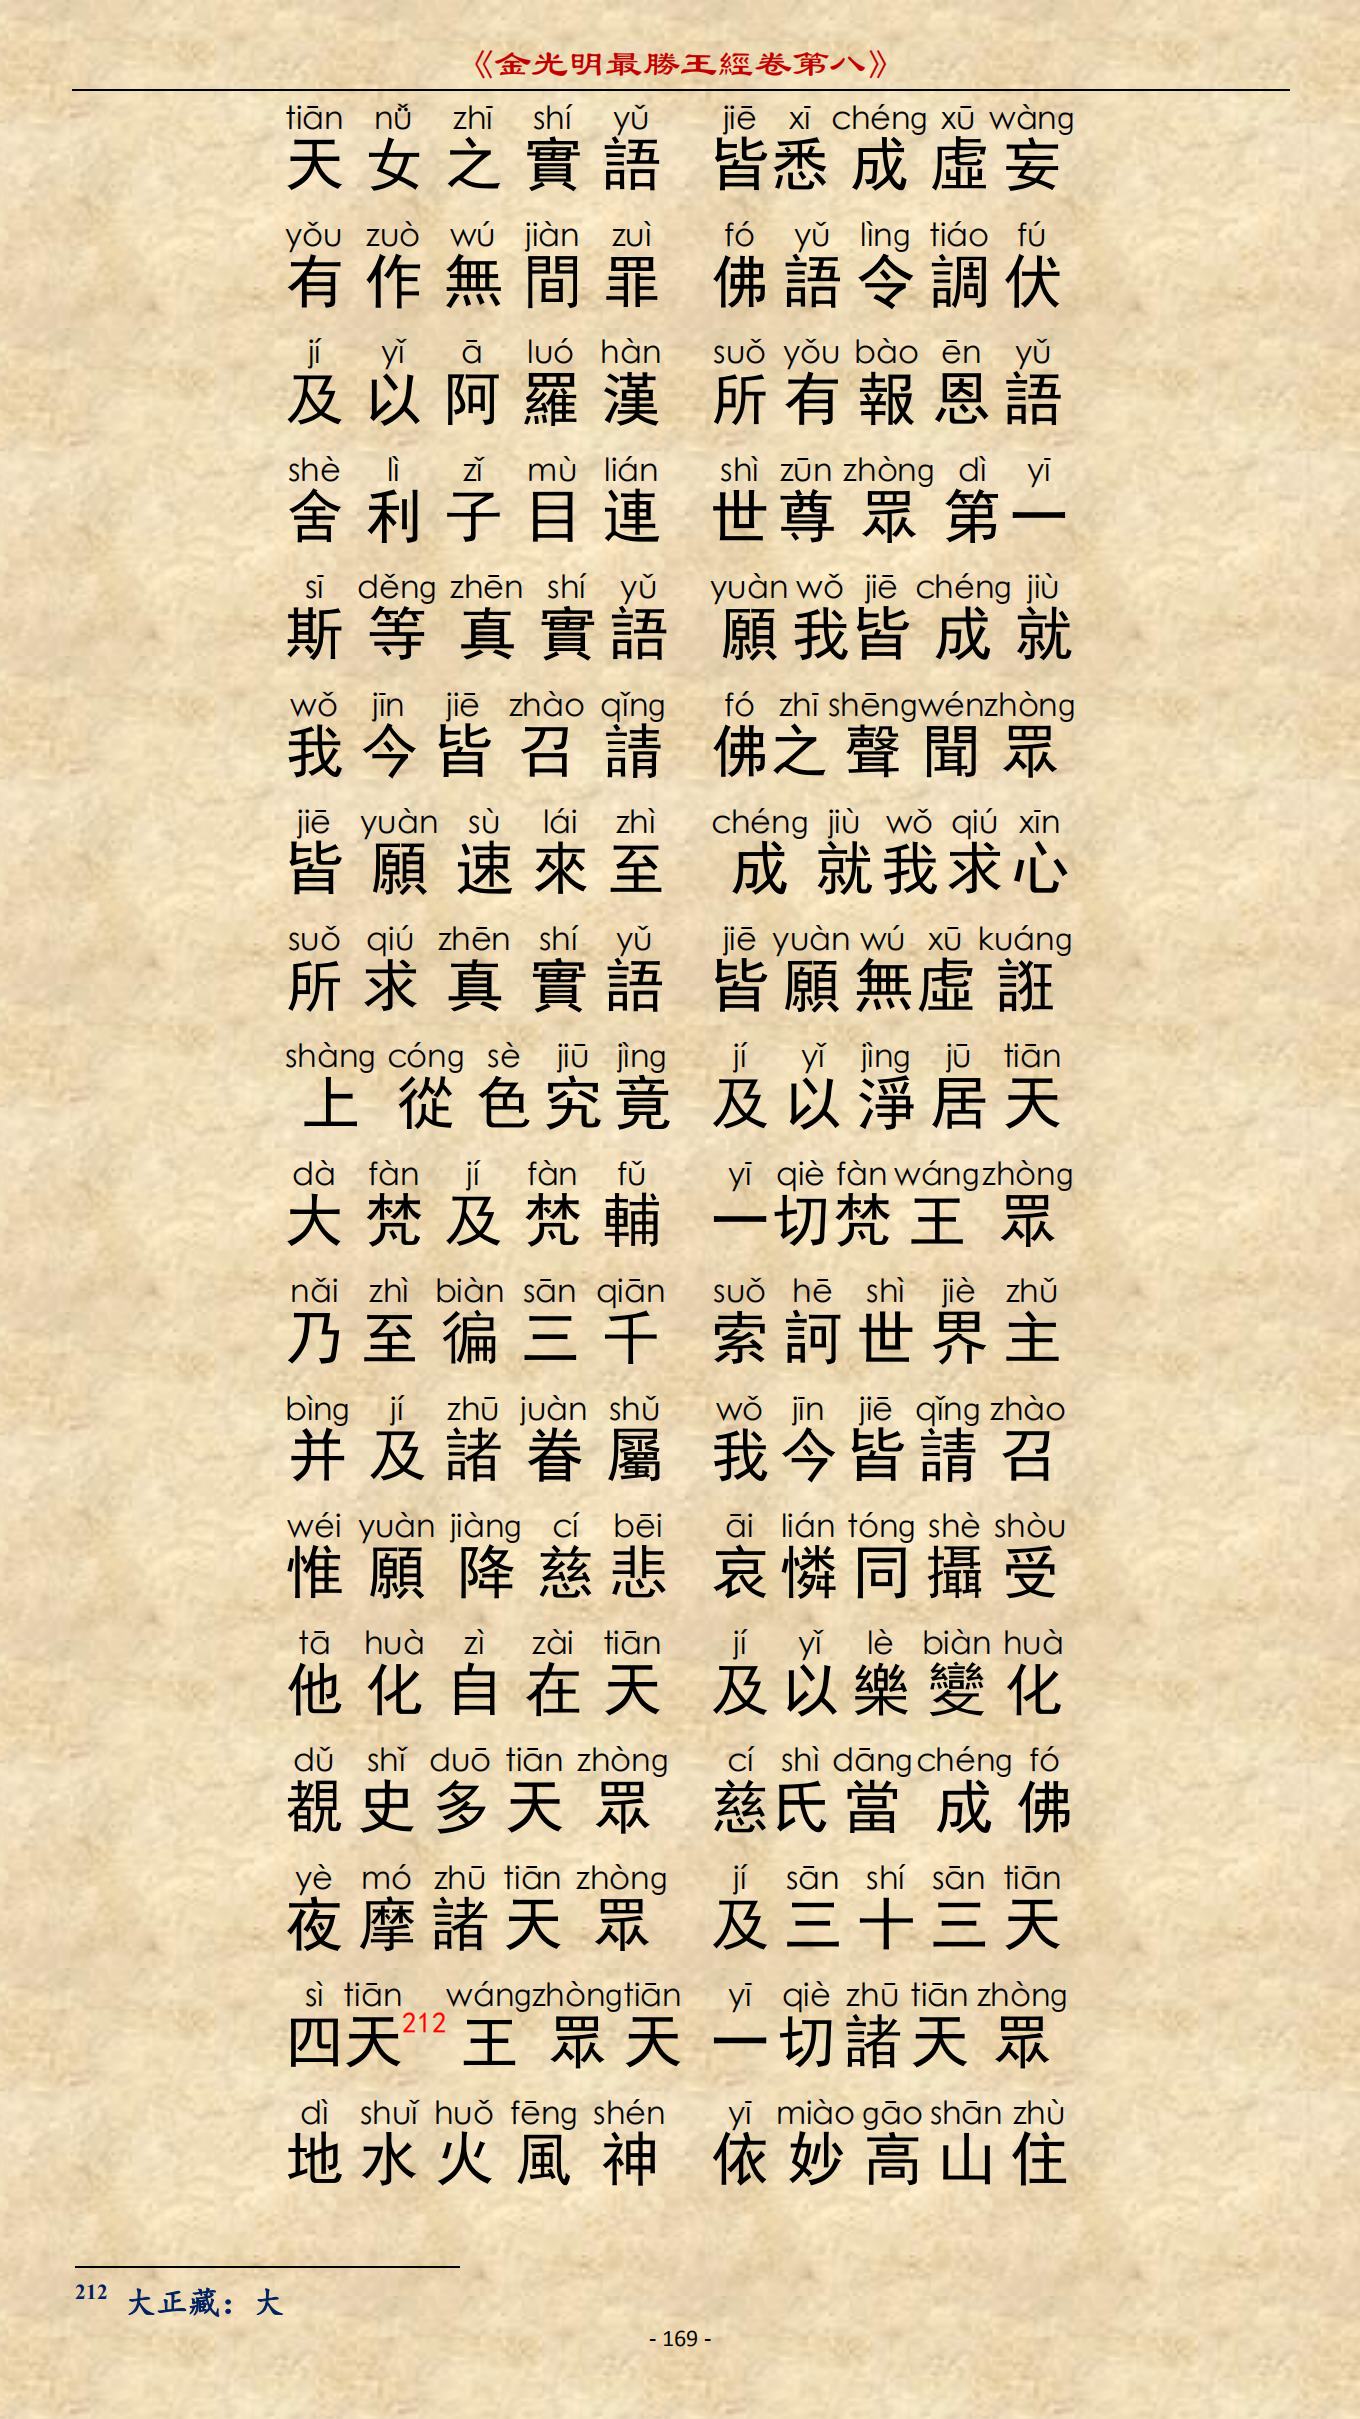 《金光明最勝王經卷第八》
tiān nǚ zhī shí yǔ jiē xī chéng xū wàng
天女之實語 皆悉成虛妄
yǒu zuò wú jiàn zuì fó yǔ lìng tiáo fú
有作無間罪 佛語令調伏
jí yǐ ā luó hàn suǒ yǒu bào ēn yǔ
及以阿羅漢 所有報恩語
shè lì zǐ mù lián shì zūn zhòng dì yī
舍利子目連 世尊眾第一
sī děng zhēn shí yǔ yuàn wǒ jiē chéng jiù
斯等真實語 願我皆成就
wǒ jīn jiē zhào qǐng fó zhī shēng wén zhòng
我今皆召請 佛之聲聞眾
jiē yuàn sù lái zhì chéng jiù wǒ qiú xīn
皆願速來至 成就我求心
suǒ qiú zhēn shí yǔ jiē yuàn wú xū kuáng
所求真實語 皆願無虛誑
shàng cóng sè jiū jìng jí yǐ jìng jū tiān
上從色究竟 及以淨居天
dà fàn jí fàn fǔ yī qiè fàn wáng zhòng
大梵及梵輔 一切梵王眾
nǎi zhì biàn sān qiān suǒ hē shì jiè zhǔ
乃至徧三千 索訶世界主
bìng jí zhū juàn shǔ wǒ jīn jiē qǐng zhào
并及諸眷屬 我今皆請召
wéi yuàn jiàng cí bēi āi lián tóng shè shòu
惟願降慈悲 哀憐同攝受
tā huà zì zài tiān jí yǐ lè biàn huà
他化自在天 及以樂變化
dǔ shǐ duō tiān zhòng cí shì dāng chéng fó
覩史多天眾 慈氏當成佛
yè mó zhū tiān zhòng jí sān shí sān tiān
夜摩諸天眾 及三十三天
sì tiān wáng zhòng tiān yī qiè zhū tiān zhòng
四天212王眾天 一切諸天眾
dì shuǐ huǒ fēng shén yī miào gāo shān zhù
地水火風神 依妙高山住
212 大正藏：大
- 169 -